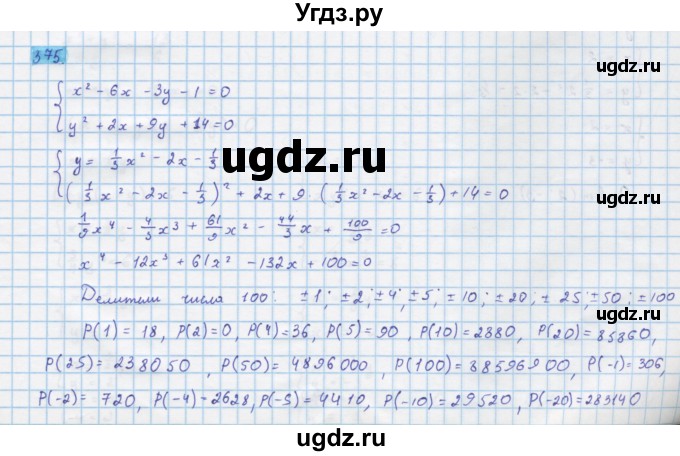 Угдз.ру
375.
{ x² - 6x - 3y - 1 = 0
{ y² + 2x + 9y + 14 = 0
{ y = 1/3 x² - 2x - 1/3
{ (1/3 x² - 2x - 1/3)² + 2x + 9 · (1/3 x² - 2x - 1/3) + 14 = 0
1/9 x⁴ - 4/3 x³ + 61/9 x² - 44/3 x + 100/9 = 0
x⁴ - 12x³ + 61x² - 132x + 100 = 0
Делители числа 100: ±1; ±2; ±4; ±5; ±10; ±20; ±25; ±50; ±100
P(1) = 18, P(2) = 0, P(4) = 36, P(5) = 90, P(10) = 2880, P(20) = 85860,
P(25) = 238050, P(50) = 4896000, P(100) = 88596900, P(-1) = 306,
P(-2) = 720, P(-4) - 2628, P(-5) = 4410, P(-10) = 29520, P(-20) = 283140
ugdz.ru
ugdz.ru
ugdz.ru
ugdz.ru
ugdz.ru
ugdz.ru